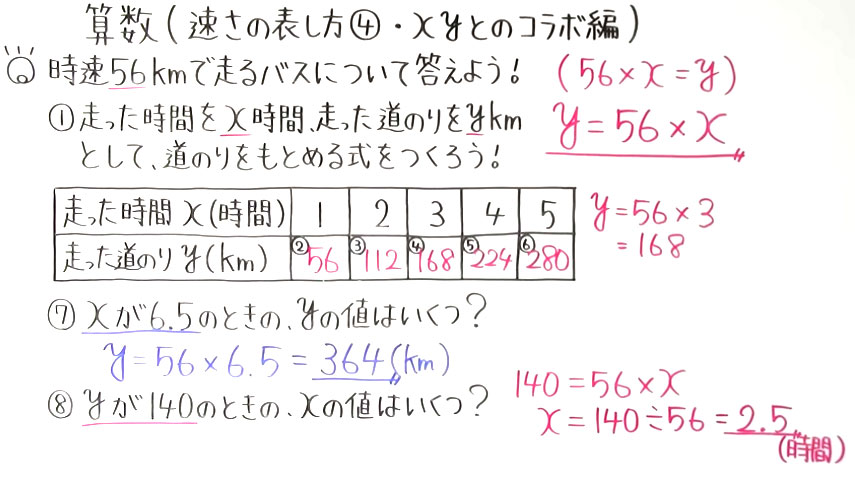 算数(速さの表し方④・xyとのコラボ編)
時速56kmで走るバスについて答えよう!
(56×x=y)
①走った時間をx時間、走った道のりをykm
として、道のりをもとめる式をつくろう!
y=56×x
走った時間x(時間) 1 2 3 4 5
走った道のりy(km) ②56 ③112 ④168 ⑤224 ⑥280
y=56×3
=168
⑦xが6.5のときの、yの値はいくつ?
y=56×6.5=364(km)
⑧yが140のときの、xの値はいくつ?
140=56×x
x=140÷56=2.5
(時間)